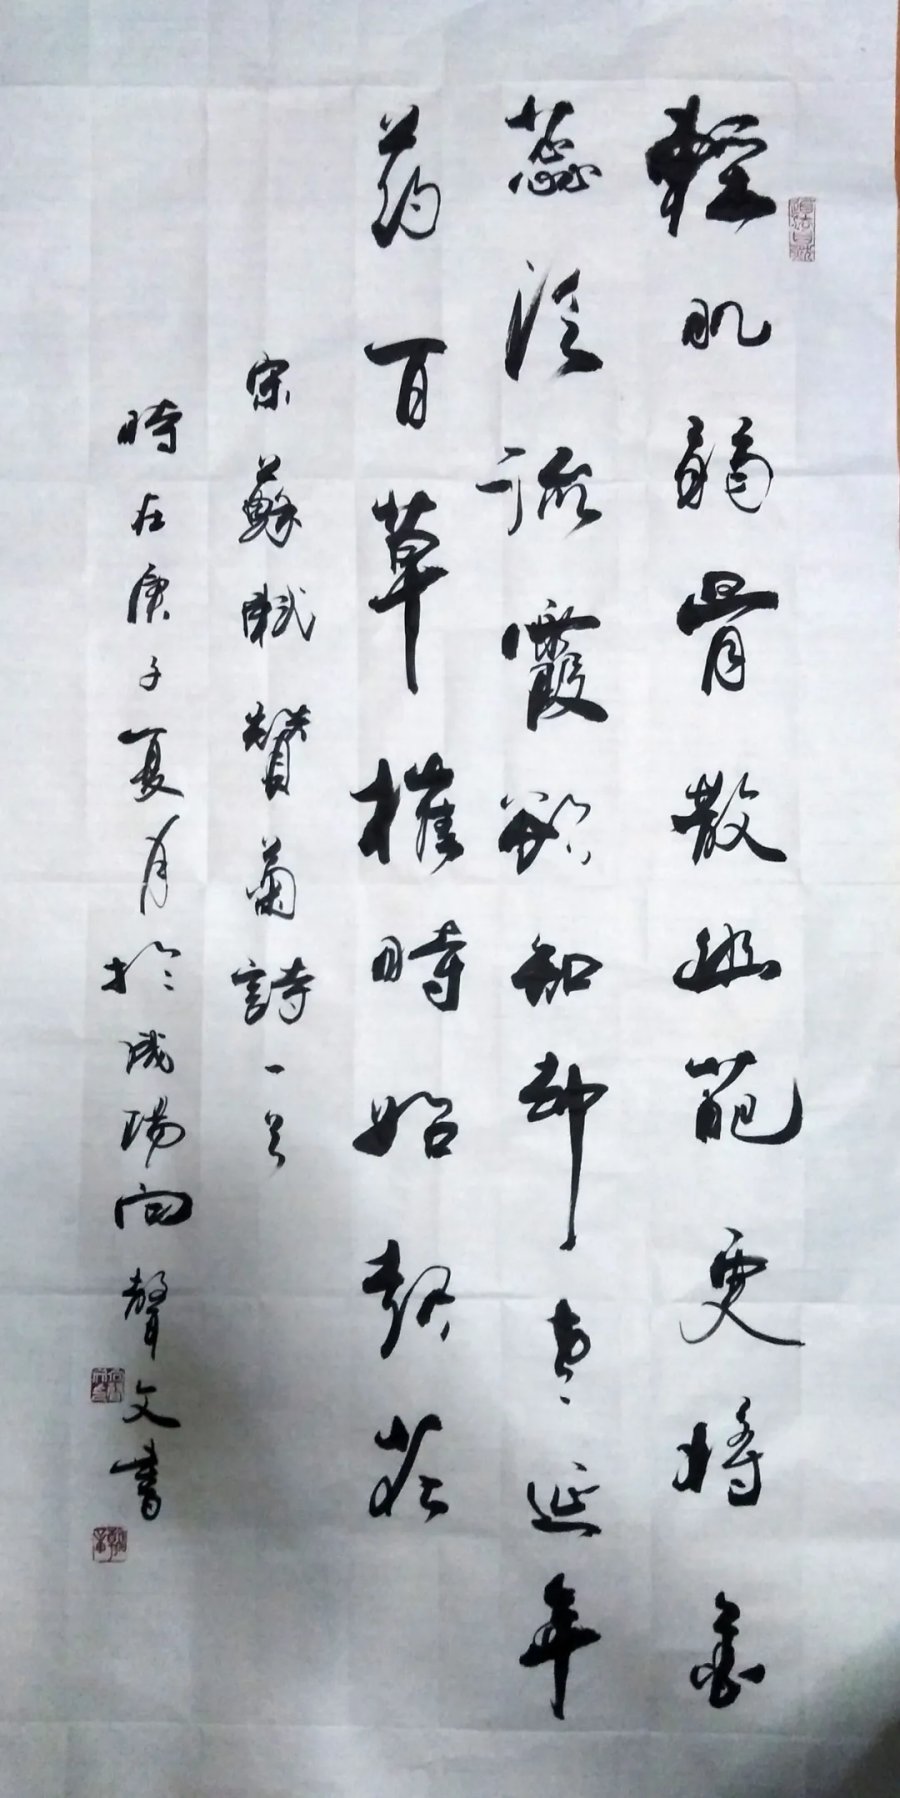 道法自然
輕肌弱骨散幽葩更將金
蕊泛流霞欲知却老延年
药百草摧時始花
宋蘇軾贊菊詩一首
時在庚子夏月於咸陽向聲文書